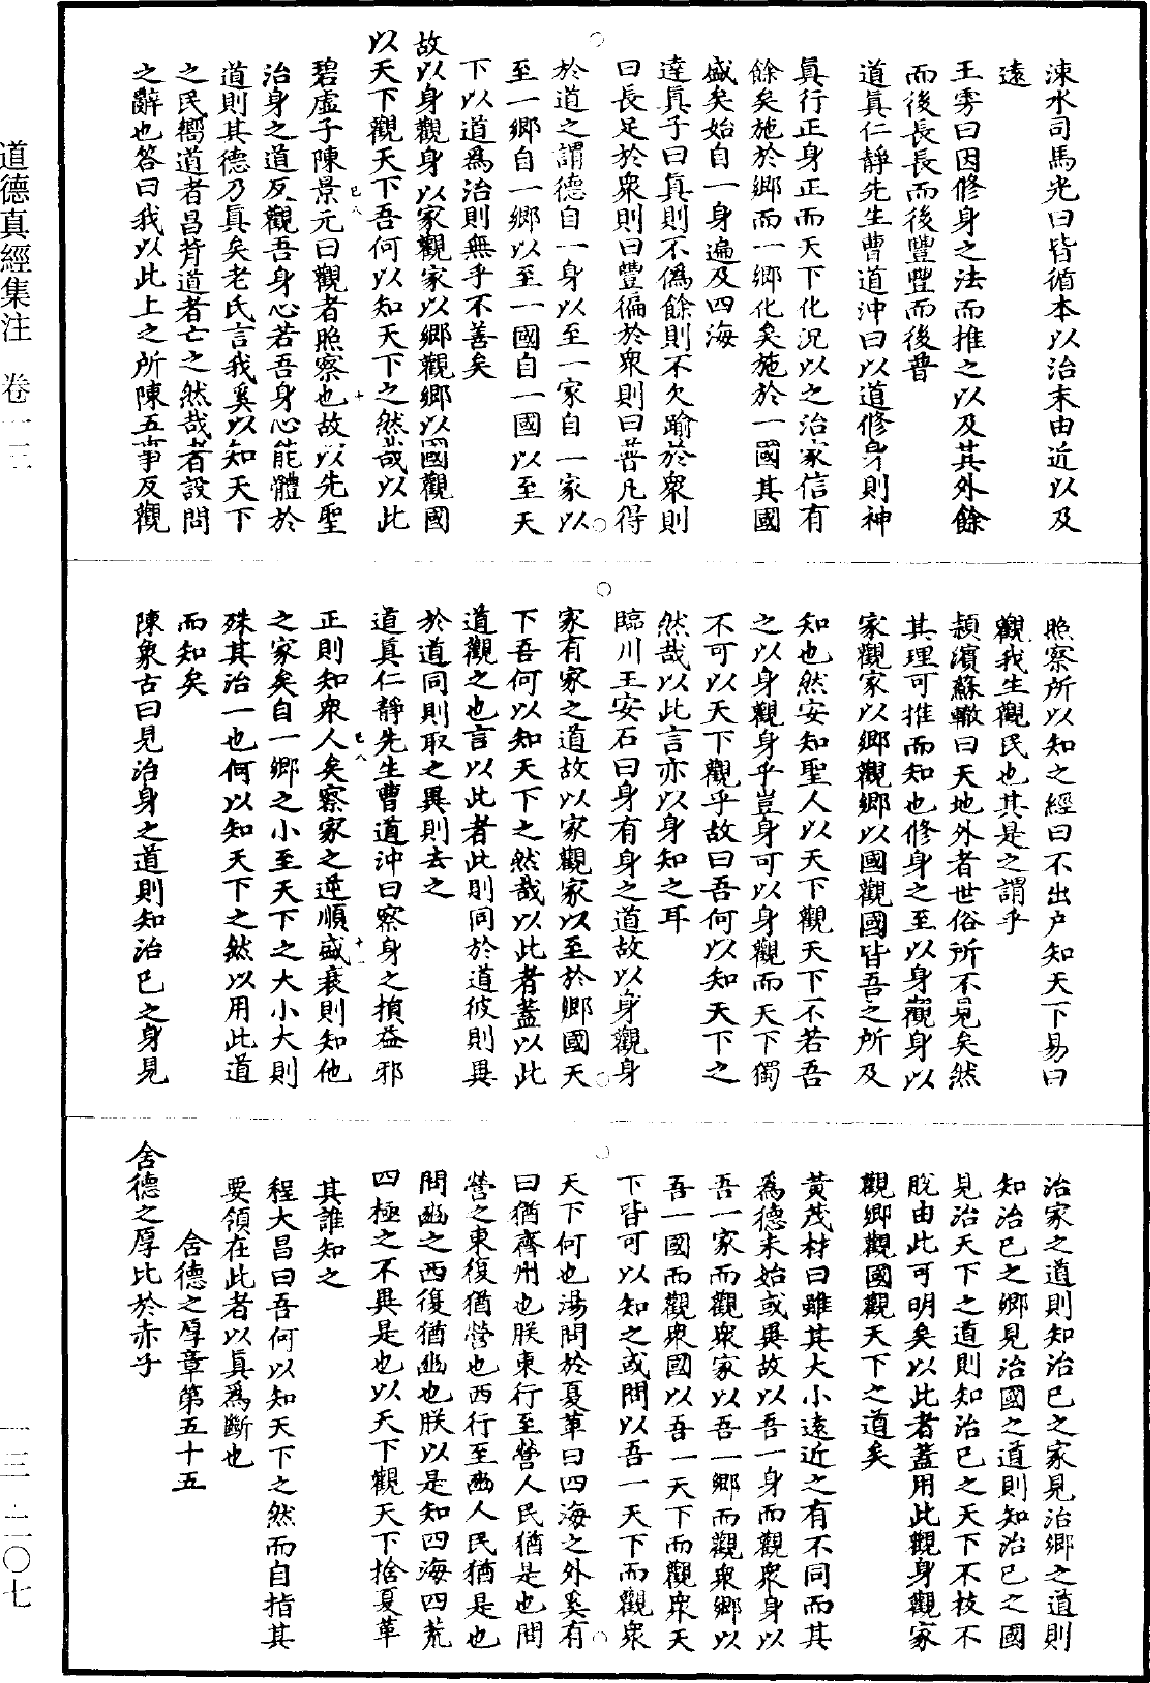 涑水司馬光曰皆循本以治末由近以及
遠
王雱曰因修身之法而推之以及其外餘
而後長長而後豐豐而後普
道真仁靜先生曹道沖曰以道修身則神
真行正身正而天下化況以之治家信有
餘矣施於鄉而一鄉化矣施於一國其國
盛矣始自一身遍及四海
達真子曰真則不偽餘則不欠踰於衆則
曰長足於衆則曰豐徧於衆則曰普凡得
於道之謂德自一身以至一家自一家以
至一鄉自一鄉以至一國自一國以至天
下以道爲治則無乎不善矣
故以身觀身以家觀家以鄉觀鄉以國觀國
以天下觀天下吾何以知天下之然哉以此
碧虛子陳景元曰觀者照察也故以先聖
治身之道反觀吾身心若吾身心能體於
道則其德乃真矣老氏言我奚以知天下
之民嚮道者昌背道者亡之然哉者設問
之辭也答曰我以此上之所陳五事反觀
照察所以知之經曰不出户知天下易曰
觀我生觀民也其是之謂乎
潁濱蘇轍曰天地外者世俗所不見矣然
其理可推而知也修身之至以身觀身以
家觀家以鄉觀鄉以國觀國皆吾之所及
知也然安知聖人以天下觀天下不若吾
之以身觀身乎豈身可以身觀而天下獨
不可以天下觀乎故曰吾何以知天下之
然哉以此言亦以身知之耳
臨川王安石曰身有身之道故以身觀身
家有家之道故以家觀家以至於鄉國天
下吾何以知天下之然哉以此者蓋以此
道觀之也言以此者此則同於道彼則異
於道同則取之異則去之
道真仁靜先生曹道沖曰察身之損益邪
正則知衆人矣察家之逆順盛衰則知他
之家矣自一鄉之小至天下之大小大則
殊其治一也何以知天下之然以用此道
而知矣
陳象古曰見治身之道則知治已之身見
治家之道則知治已之家見治鄉之道則
知治已之鄉見治國之道則知治已之國
見治天下之道則知治已之天下不枝不
脫由此可明矣以此者蓋用此觀身觀家
觀鄉觀國觀天下之道矣
黃茂材曰雖其大小遠近之有不同而其
爲德未始或異故以吾一身而觀衆身以
吾一家而觀衆家以吾一鄉而觀衆鄉以
吾一國而觀衆國以吾一天下而觀衆天
下皆可以知之或問以吾一天下而觀衆
天下何也湯問於夏革曰四海之外奚有
曰猶齊州也朕東行至營人民猶是也問
營之東復猶營也西行至豳人民猶是也
問豳之西復猶豳也朕以是知四海四荒
四極之不異是也以天下觀天下捨夏革
其誰知之
程大昌曰吾何以知天下之然而自指其
要領在此者以真爲斷也
含德之厚章第五十五
含德之厚比於赤子
道德真經集注　卷一三
一三·一〇七